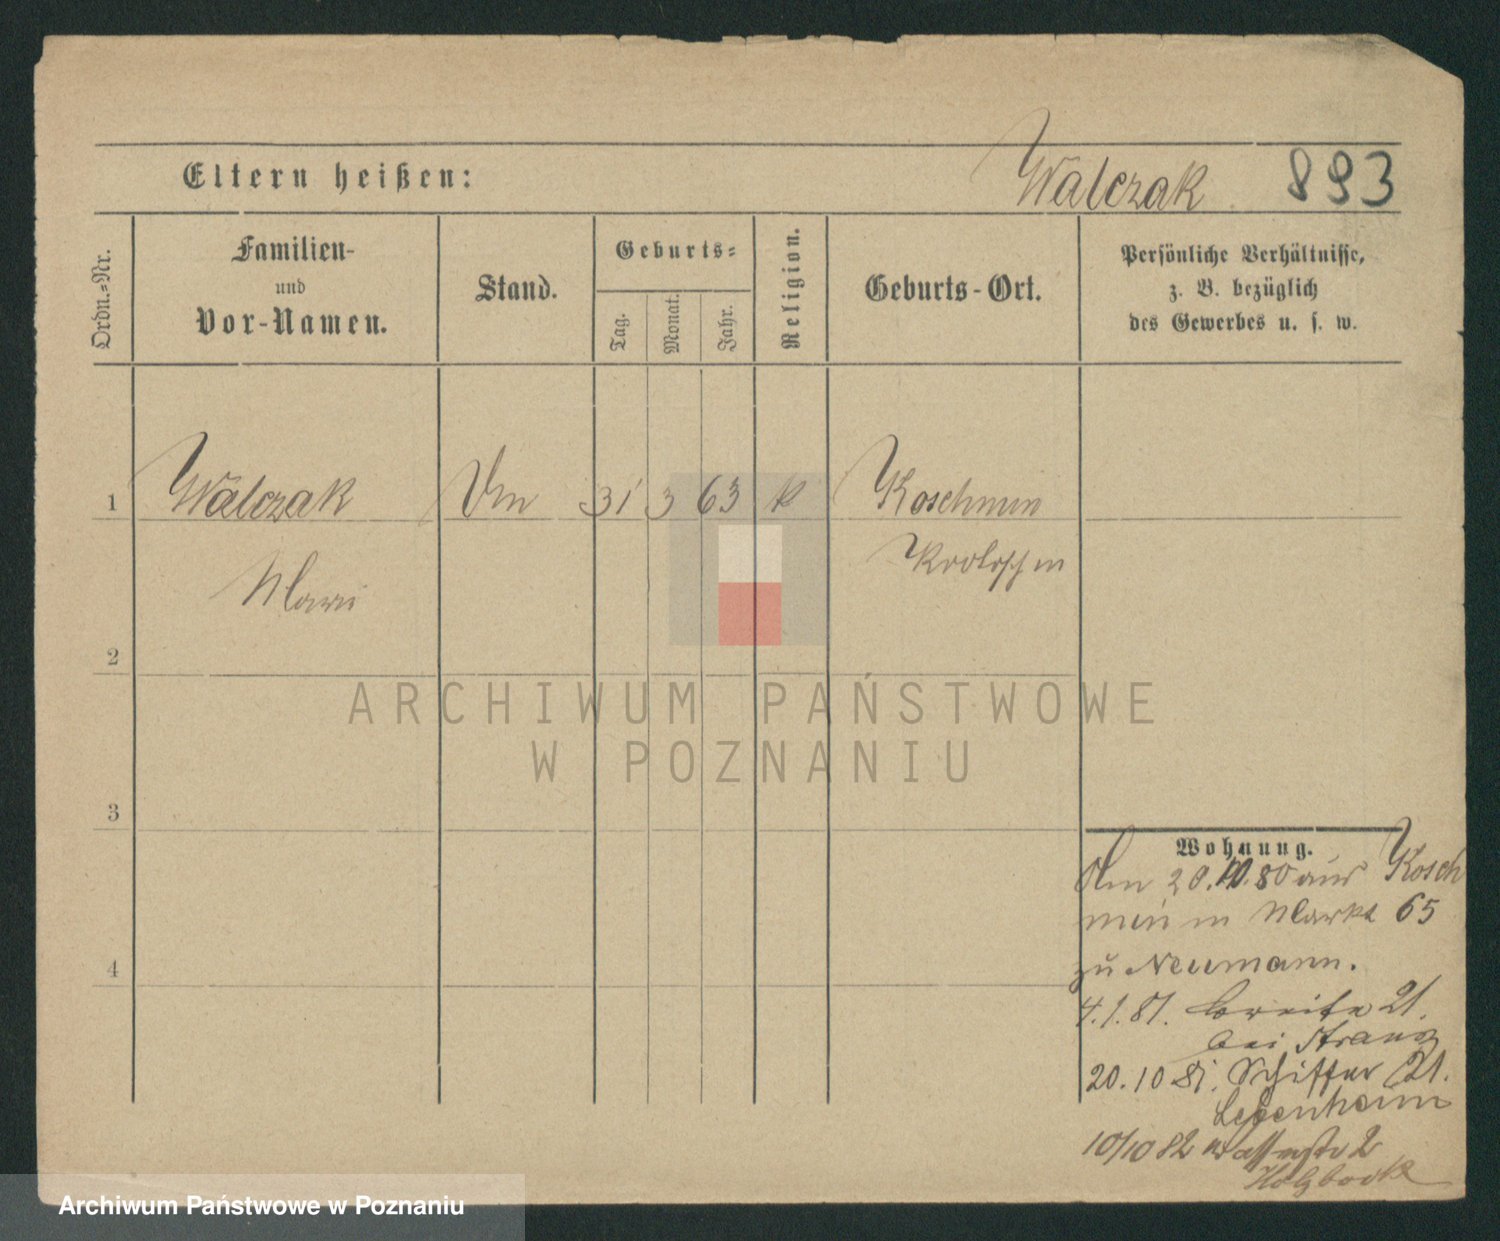 Eltern heißen:
Walczak 893
Ordn.=Nr.
Familien-
und
Vor-Namen.
Stand.
Geburts=
Tag.
Monat.
Jahr.
Religion.
Geburts-Ort.
Persönliche Verhältnisse,
z. B. bezüglich
des Gewerbes u. s. w.
1 Walczak 31 3 63 k Koschmin
Krotoschin
Marie
2
ARCHIWUM PAŃSTWOWE
W POZNANIU
3
Wohnung.
20.10.80 aus Kosch
min Markt 65
zu Neumann.
4
4.1.81. breite 21.
bei
20.10 81. Schiffer 21.
10/10 82 2
Archiwum Państwowe w Poznaniu